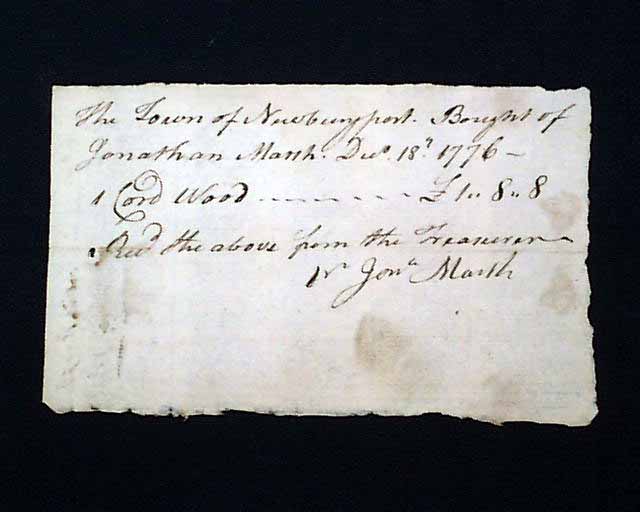 The Town of Newburyport. Bought of
Jonathan Marsh. Decr. 18th 1776 –
1 Cord Wood - - - - - - - £ 1 „ 8 „ 8
Recd the above from the Treasurer
pr Jona Marsh